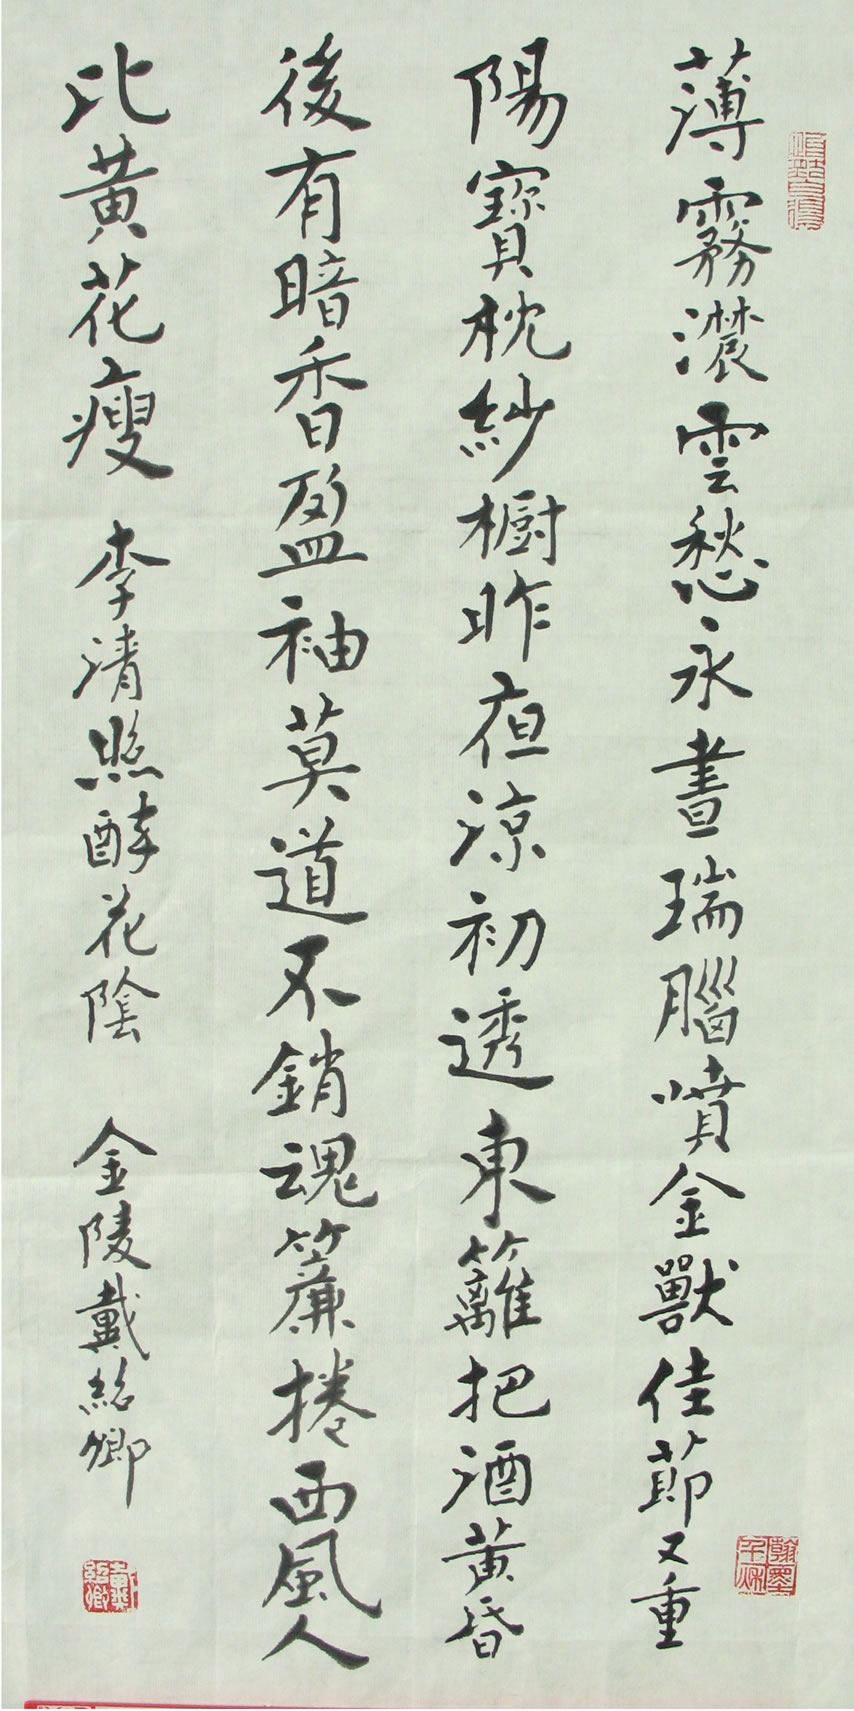 薄霧濃雲愁永晝瑞腦噴金獸佳節又重
陽寶枕紗橱昨夜涼初透東籬把酒黃昏
後有暗香盈袖莫道不銷魂簾捲西風人
比黃花瘦 李清照醉花陰 金陵戴紹卿
翰墨千秋
戴紹卿